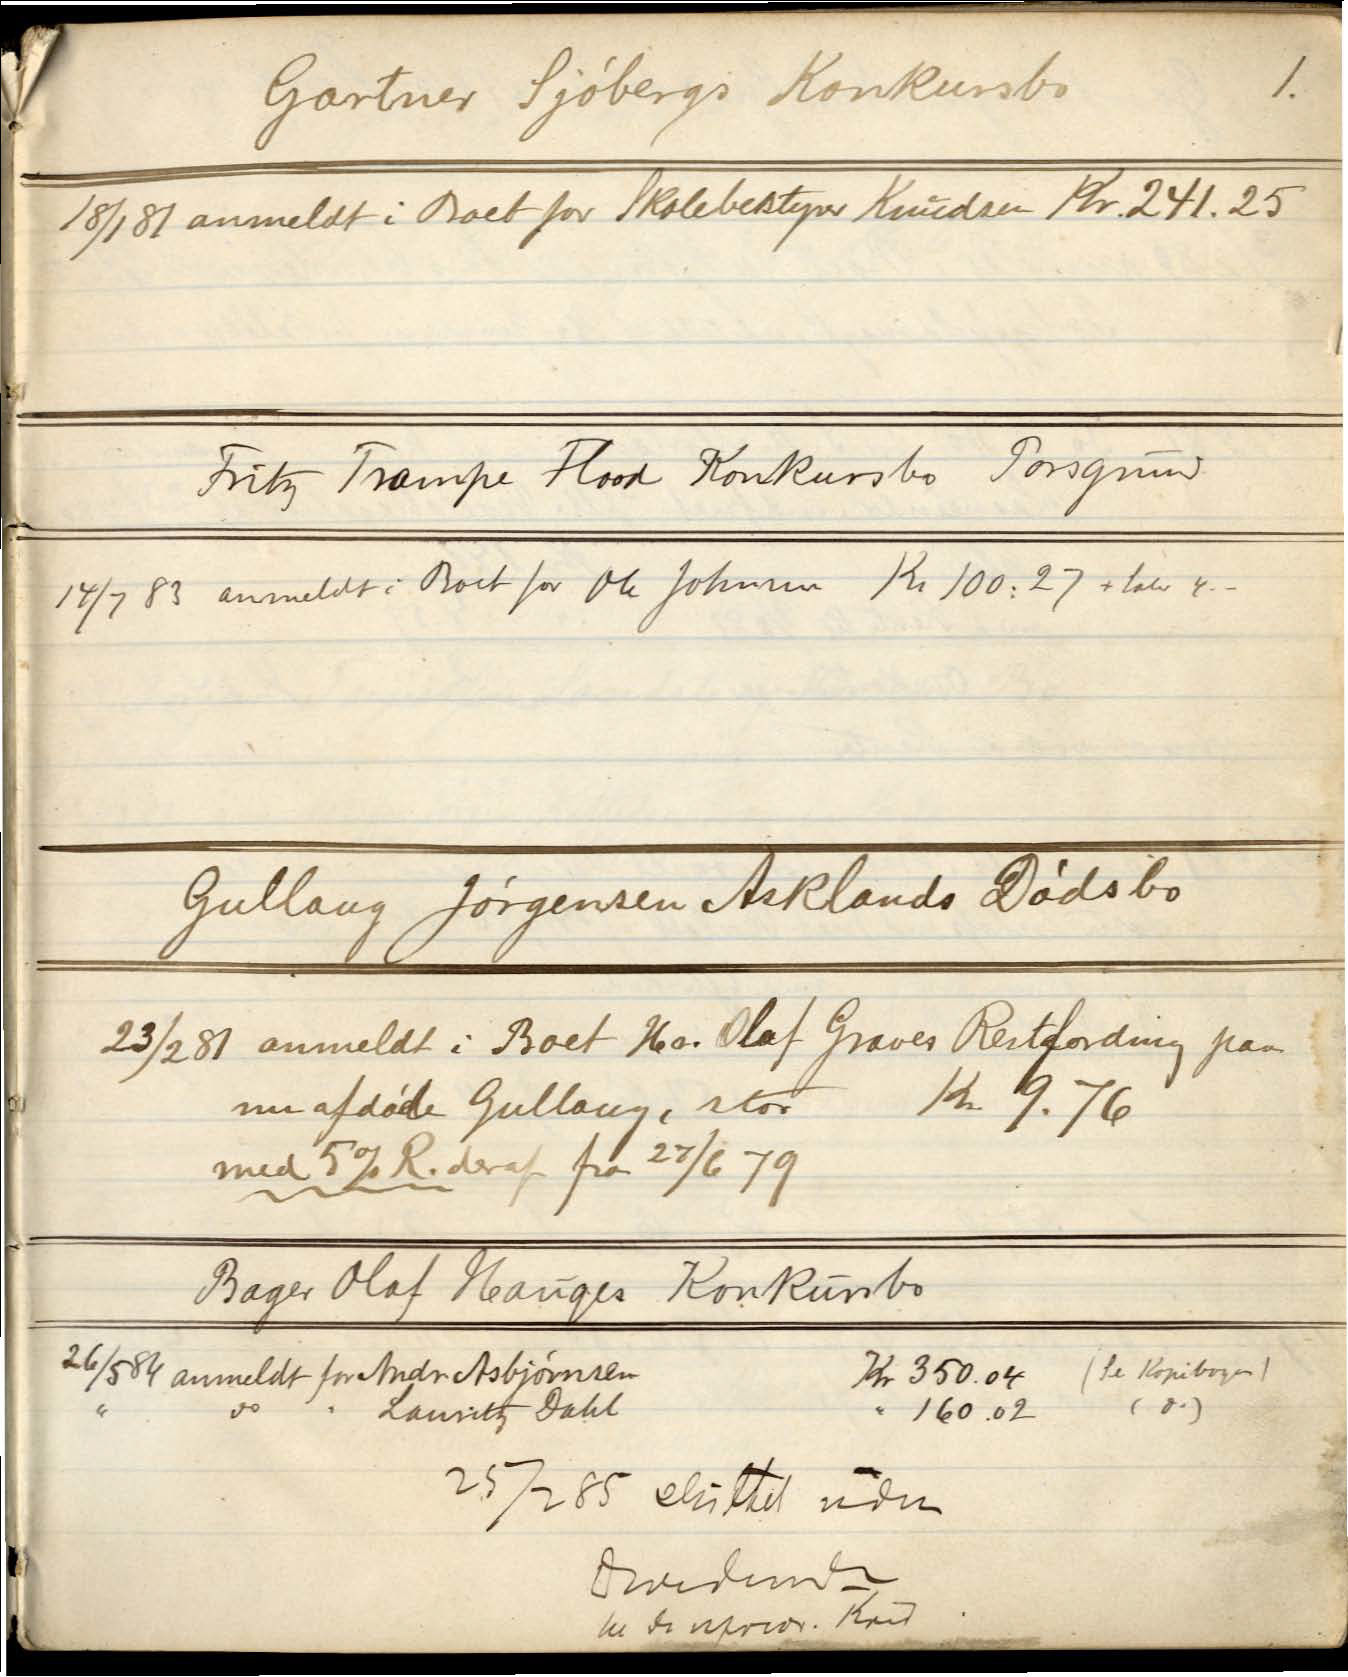 Gartner Sjóbergs Konkursbo 1.
18/1 81 anmeldt i Boet for Skolebestyrer Knudsen Kr. 241.25
Fritz Trampe Flood Konkursbo Porsgrund
14/7 83 anmeldt i Boet for Ole Johnsen Kr 100:27
Gullaug Jórgensen Asklands Dódsbo
23/2 81 anmeldt i Boet Ha. Olaf Graves Restfording paa
nu afdóde Gullaug, stor Kr 9.76
med 5% R. deraf fra 27/6 79
Bager Olaf Hauges Konkursbo
26/5 84 anmeldt for Andr Asbjørnsen Kr 350.04 (Se Kopibogen)
" do " Lauritz Dahl " 160.02 (do)
25/2 85 sluttet uden
Dividende